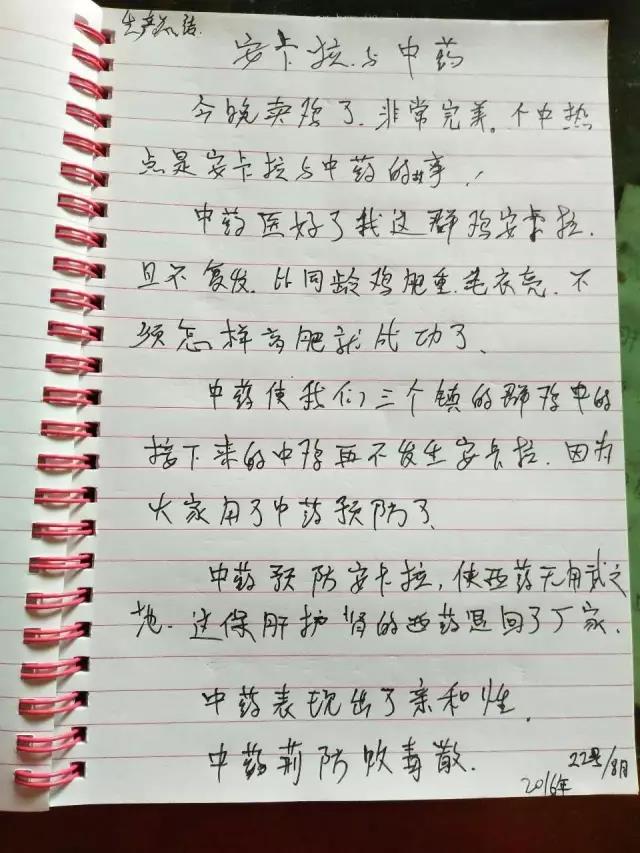 生产总结
安卡拉与中药
今晚卖鸡了,非常完美。个中热
点是安卡拉与中药的事!
中药医好了我这群鸡安卡拉,
且不复发,比同龄鸡肥重,毛衣亮,不
须怎样育肥就成功了,
中药使我们三个镇的群鸡中的
接下来的中鸡再不发生安卡拉,因为
大家用了中药预防了,
中药预防安卡拉,使西药无用武之
地,这保肝护肾的西药退回了厂家,
中药表现出了亲和性,
中药荆防败毒散,
2016年 22号/8月